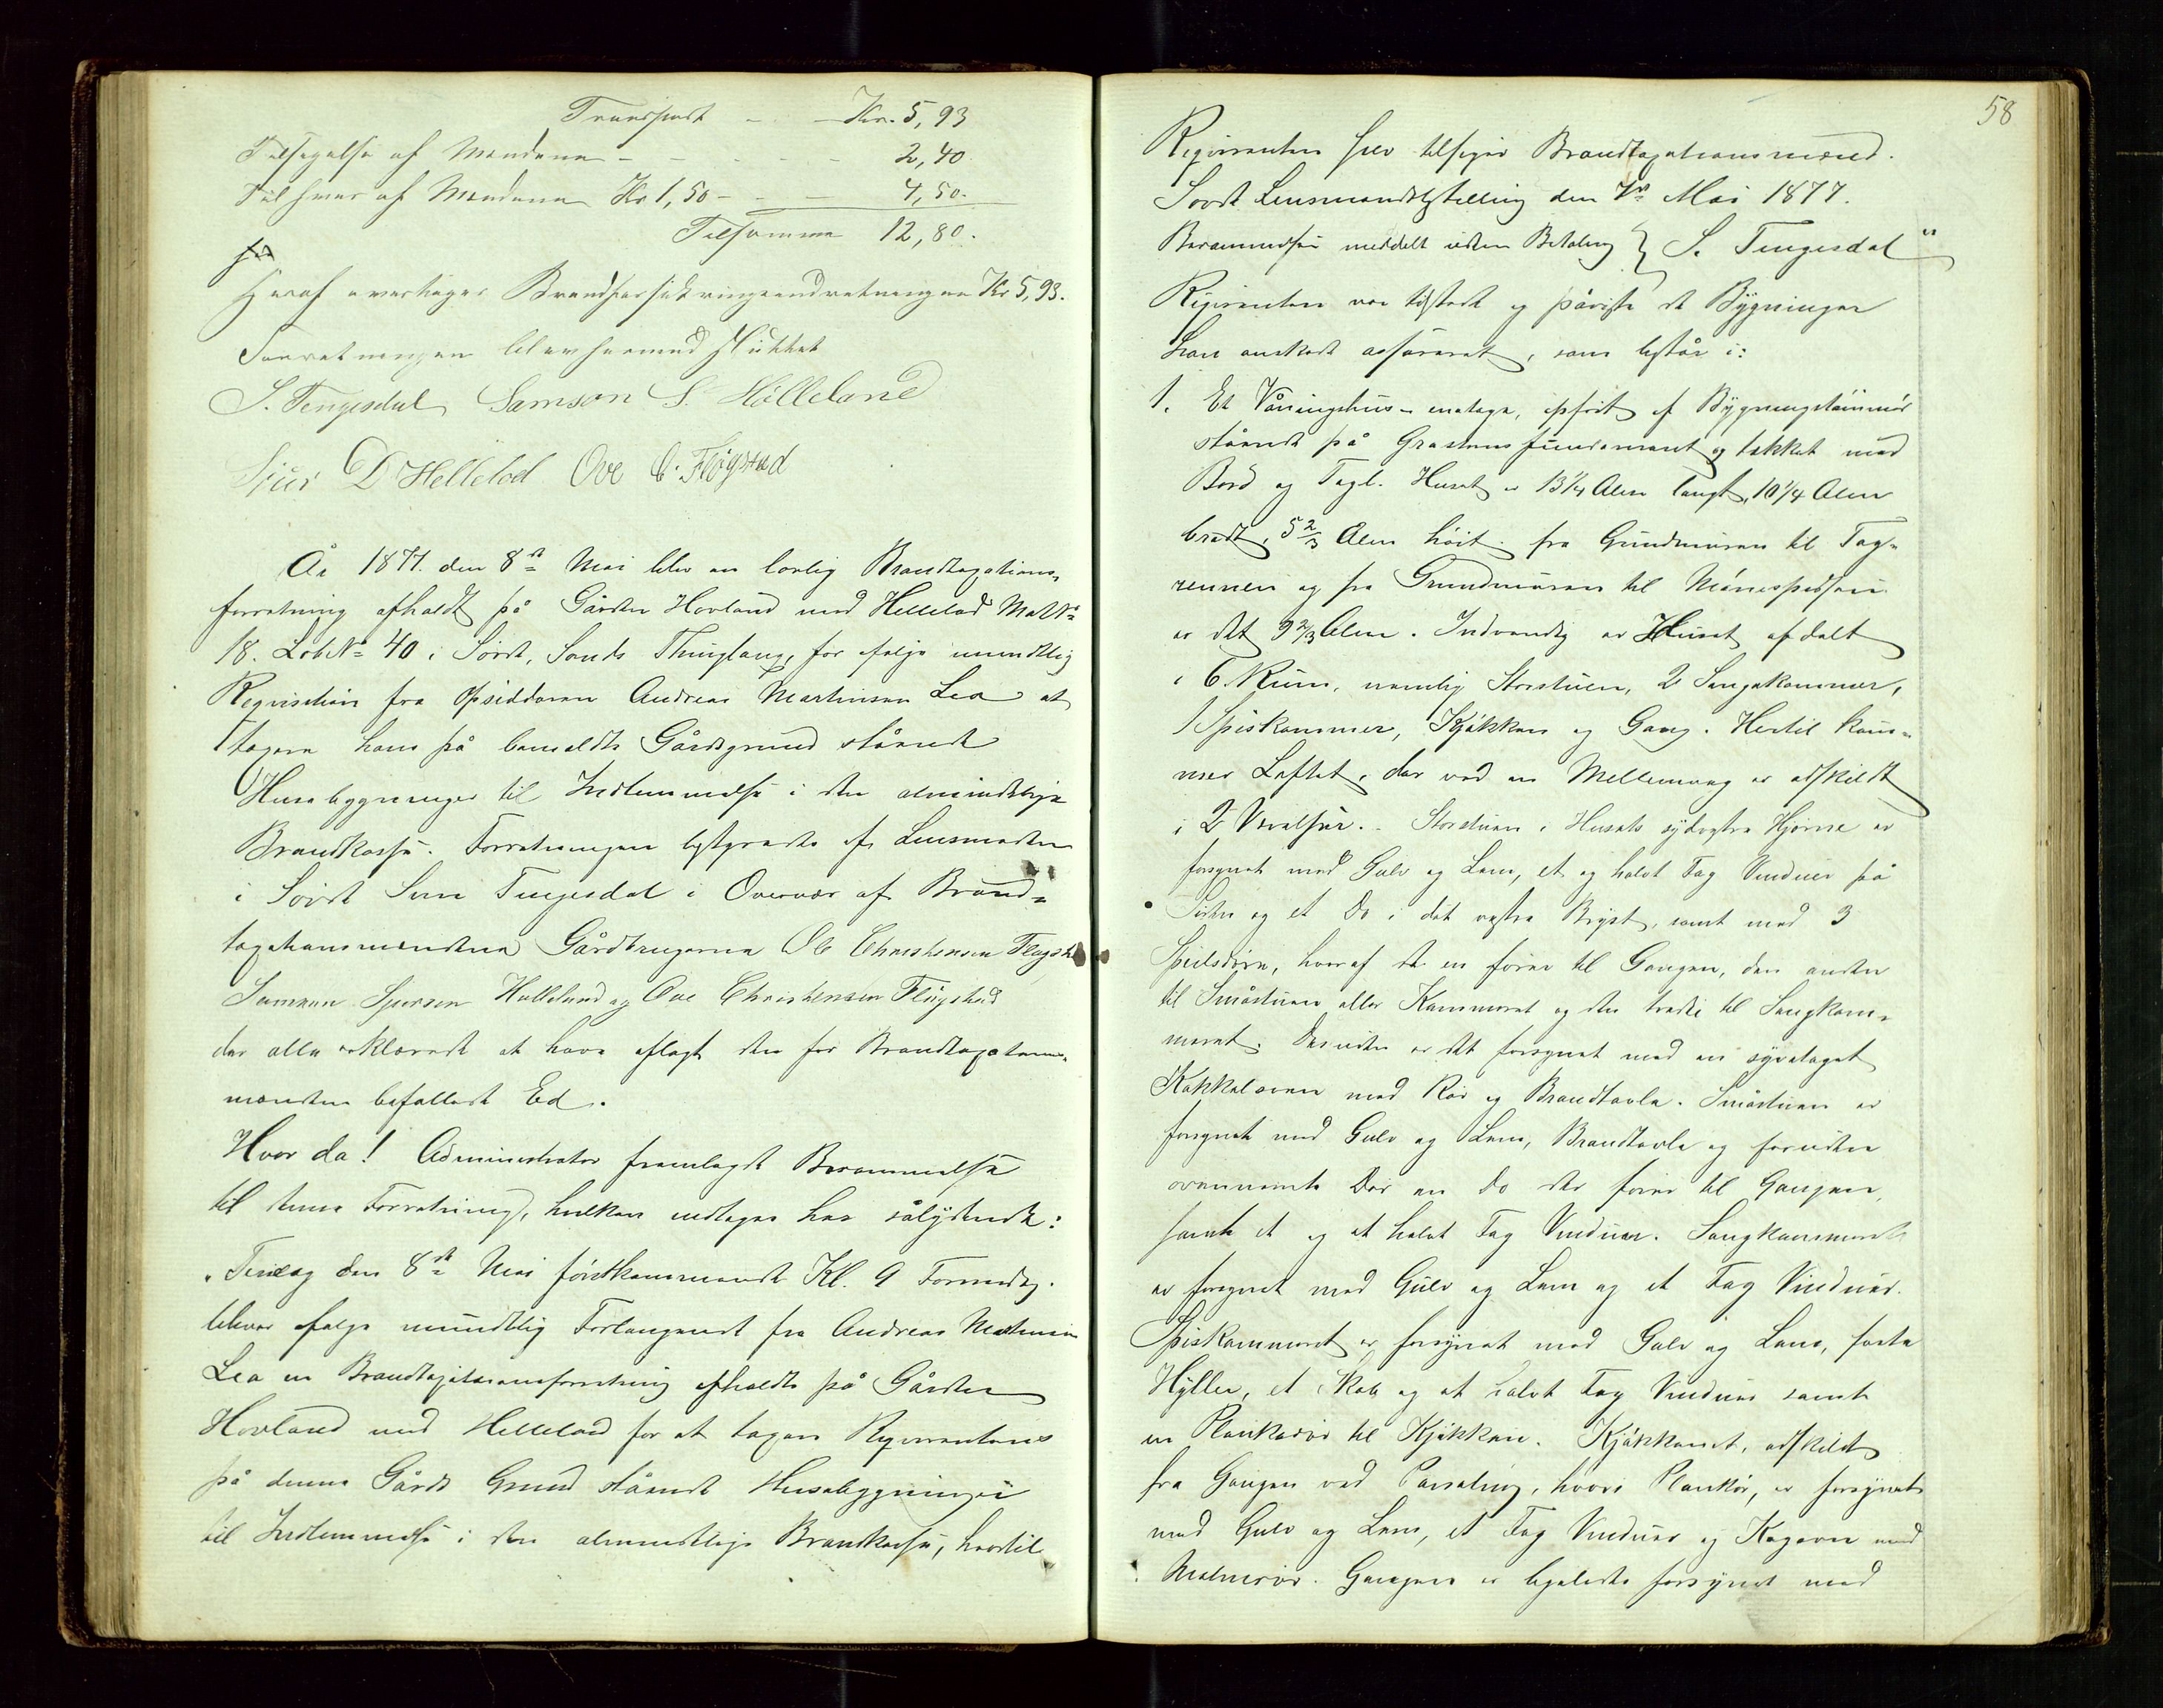 Transport - - Kr. 5,93
Tilsigelse af Mændene - - - - - 2,40.
Til hver af Mændene Kr 1,50 - - - 4,50.
Tilsamme 12,80.
Heraf overtager Brandforsikringsindretningen Kr 5,93.
Forretningen blev hermed sluttet
S. Tengesdal Samson S. Hølleland
Sjur D Hellelad Ove C. Fløgstad
År 1877. den 8de Mai blev en lovlig Brandtaxations-
forretning afholdt på Gården Hovland med Hellelad Mat No
18. Løb No 40 i Søvde, Sands Thinglaug, for efølge mundtlig
Requisition fra Opsidderen Andreas Martinsen Lea at
taxere hans på bemeldte Gårdsgrund stående
Husebygninger til Indlemmelse i den almindelige
Brandkasse. Forretningen bestyredes af Lensmanden
i Søvde Sven Tengesdal i Overvær af Brand-
taxationsmændene Gårdbrugerne Ole Christensen Fløgstad
Samson Sjursen Hølleland og Ove Christensen Fløgstad
der alle erklærede at have aflagt den for Brandtaxations-
mændene befallede Ed.
Hvor da! Administrator fremlagde Berammelse
til denne Forretning, hvilken indtages her sålydende:
"Tirsdag den 8de Mai førstkommende Kl. 9 Formidag.
bliver efølge mundtlig Forlangende fra Andreas Martinsen
Lea en Brandtaxationsforretning afholdt på Gården
Hovland med Hellelad for at taxere Reqvirentens
på denne Gårds Grund stående Husebygninger
til Indlemmelse i den almindelige Brandkasse, hvortil
58
Reqvirenten selv tilsiger Brandtaxationsmænd.
Søvde Lensmandsbestilling den 7de Mai 1877.
Berammelsen meddelt uden Betaling } S. Tengesdal"
Reqvirenten var tilstede og påviste de Bygninger
han ønskede assureret, som består i:
1. Et Våningshus - enetages, opført af Bygningstømmer
stående på Grastensfundament og tækket med
Bord og Tagl. Huset er 13 1/4 Alen langt, 10 1/4 Alen
bredt, 5 2/3 Alen høit fra Gundmuren til Tag-
rennen og fra Grundmuren til Mønespidsen
er det 9 2/3 Alen. Indvendig er Huset afdelt
i 6 Rum, nemlig Storstuen, 2 Sengekammer,
1 Spiskammer, Kjøkken og Gang. Hertil kom-
mer Loftet, der ved en Mellemvæg er adskildt
i 2 Værelser. Storstuen i Husets sydvestre Hjørne er
forsynet med Gulv og Lem, et og halvt Fag Vinduer på
Siden og et Do i det vestre Bryst, samt med 3
Speilsdøre, hvoraf den en fører til Gangen, den anden
til Småstuen eller Kammeret og den tredie til Sengkam-
meret. Desuden er det forsynet med en syvetaget
Kakkelovn med Rør og Brandtavle. Småstuen er
forsynet med Gulv og Lem, Brandtavle og foruden
ovennævnte Dør en Do der fører til Gangen,
samt et og et halvt Fag Vinduer. Sengkammeret
er forsynet med Gulv og Lem og et Fag Vinduer.
Spiskammeret er forsynet med Gulv og Lem, faste
Hyller, et Skab og et halvt Fag Vinduer samt
en Plankedør til Kjøkken. Kjøkkenet, adskildt
fra Gangen ved Paneling, hvori Plankdør, er forsynet
med Gulv og Lem, et Fag Vinduer og Kogeovn med
Malmrør. Gangen er ligeledes forsynet med